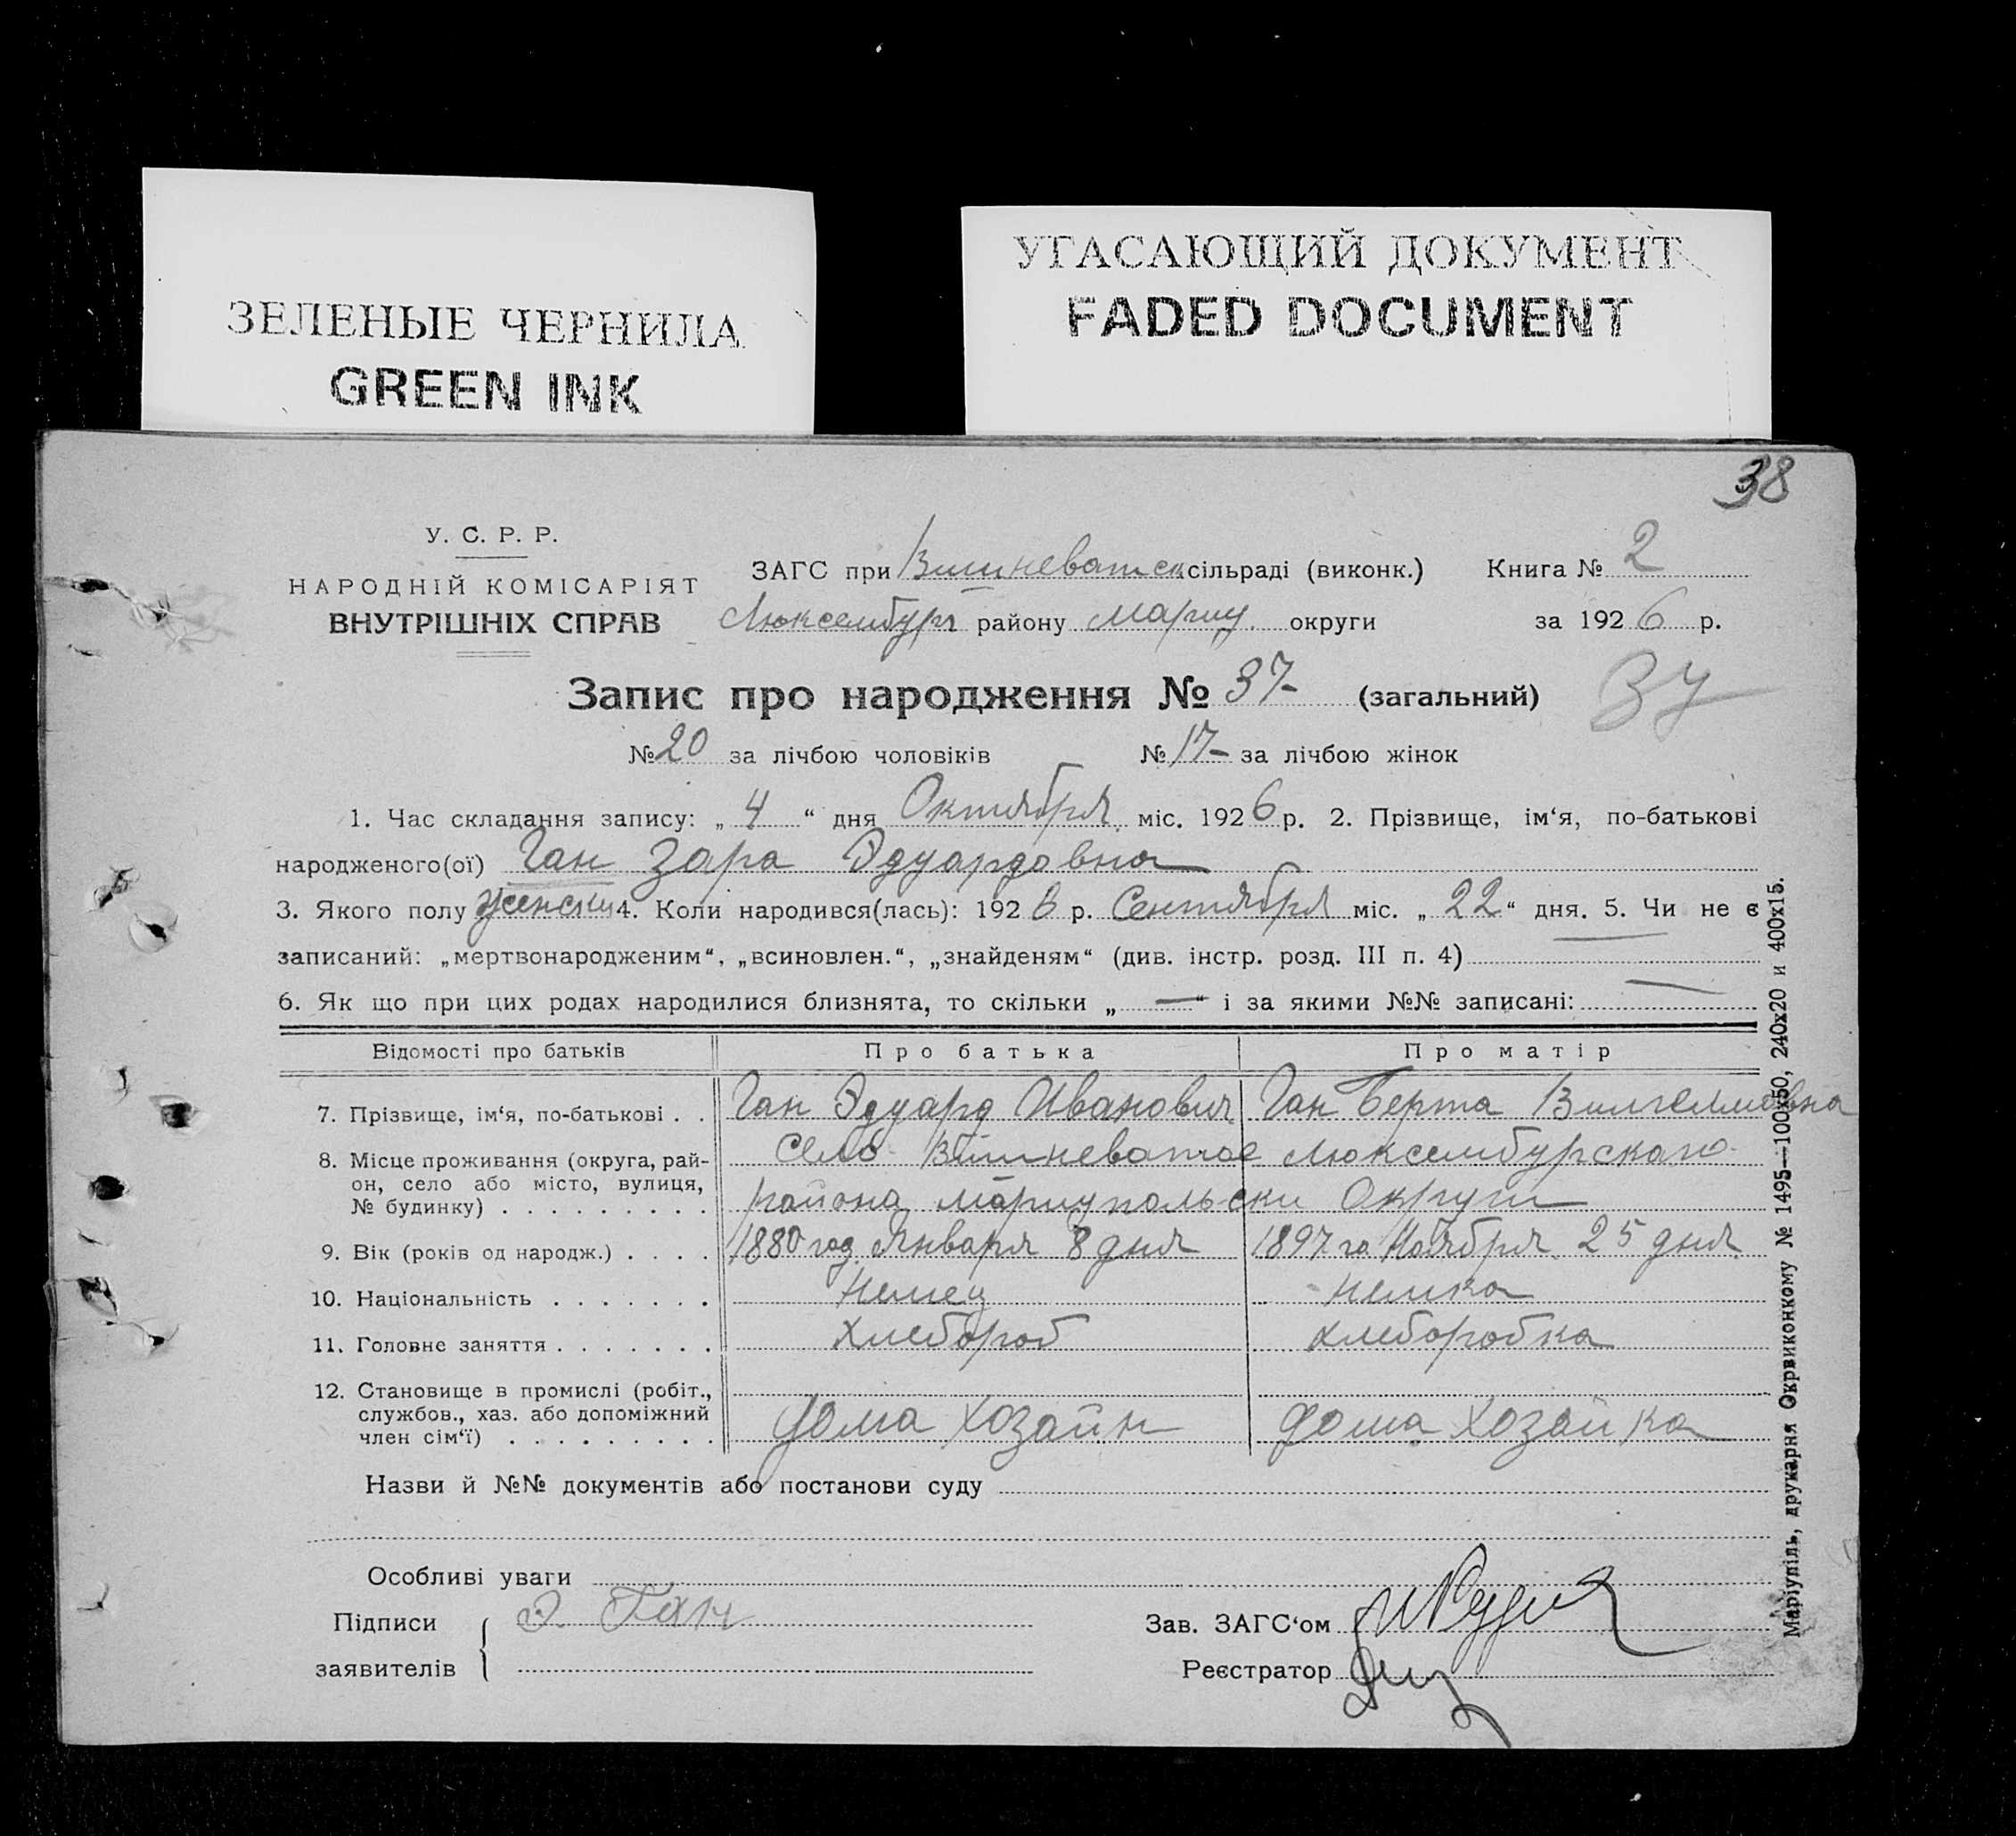 ЗЕЛЕНЫЕ ЧЕРНИЛА
GREEN INK
УГАСАЮЩИЙ ДОКУМЕНТ
FADED DOCUMENT
38
У. С. Р. Р.
НАРОДНІЙ КОМІСАРІЯТ
ВНУТРІШНІХ СПРАВ
ЗАГС при Вишневатск сільраді (виконк.) Книга № 2
Люксембург району Мариу. округи за 1926 р.
Запис про народження № 37 (загальний) 37
№ 20 за лічбою чоловіків № 17 за лічбою жінок
1. Час складання запису: „ 4 “ дня Октября міс. 1926 р. 2. Прізвище, ім‘я, по-батькові
народженого(ої) Ган Зара Эдуардовна
3. Якого полу женски 4. Коли народився(лась): 1926 р. Сентября міс. „ 22 “ дня. 5. Чи не є
записаний: „мертвонародженим“, „всиновлен.“, „знайденям“ (див. інстр. розд. III п. 4) —
6. Як що при цих родах народилися близнята, то скільки „ — “ і за якими №№ записані: —
Відомості про батьків Про батька Про матір
7. Прізвище, ім‘я, по-батькові . . Ган Эдуард Иванович Ган Берта Вилгелмовна
8. Місце проживання (округа, рай- село Вишневатое Люксембурскаго
он, село або місто, вулиця, района Мариупольски Округи
№ будинку) . . . . . . . . .
9. Вік (років од народж.) . . . . 1880 год Января 8 дня 1897 го Ноября 25 дня
10. Національність . . . . . . . Немец немка
11. Головне заняття . . . . . . . хлебороб хлеборобка
12. Становище в промислі (робіт.,
службов., хаз. або допоміжний дома хозаин дома хозаика
член сім‘ї) . . . . . . . . .
Назви й №№ документів або постанови суду
Особливі уваги
Підписи Э. Ган Зав. ЗАГС‘ом
заявителів Реєстратор
Маріупіль, друкарня Окрвиконкому № 1495—100x50, 240x20 и 400x15.